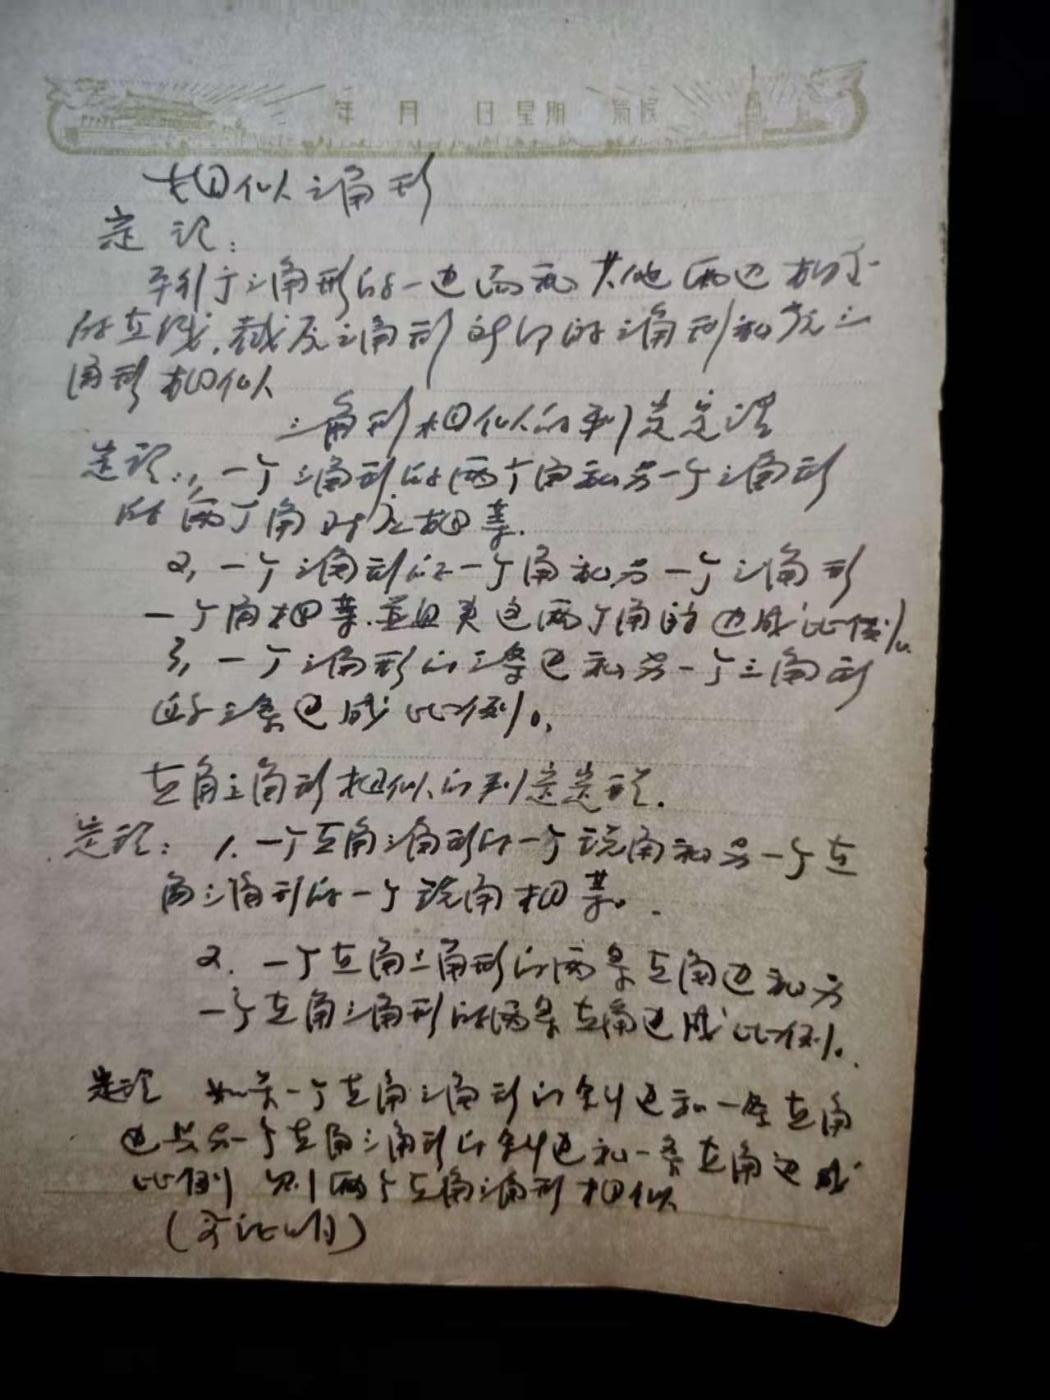 年 月 日 星期 气候
相似三角形
定理：
平行于三角形的一边而和其他两边相交
的直线，截原三角形所得的三角形和原三
角形相似
三角形相似的判定定理
定理：1, 一个三角形的两个角和另一个三角形
的两个角对应相等.
2, 一个三角形的一个角和另一个三角形
一个角相等.并且夹这两个角的边成比例.
3, 一个三角形的三条边和另一个三角形
的三条边成比例。
直角三角形相似的判定定理.
定理：1. 一个直角三角形的一个锐角和另一个直
角三角形的一个锐角相等。
2. 一个直角三角形的两条直角边和另
一个直角三角形的两条直角边成比例。
定理 如果一个直角三角形的斜边和一条直角
边与另一个直角三角形的斜边和一条直角边成
比例 则两个直角三角形相似
(证明)